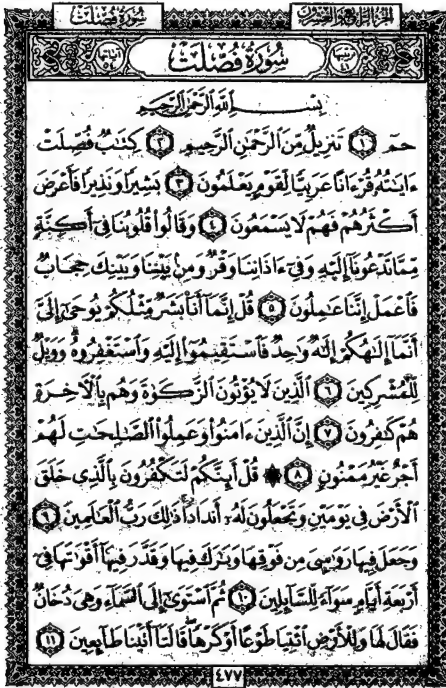 سُورَةُ فُصِّلَتْ الجزء الرابع والعشرون
سُورَةُ فُصِّلَتْ
بِسْمِ اللَّهِ الرَّحْمَٰنِ الرَّحِيمِ
حمٓ ١ تَنزِيلٌ مِّنَ ٱلرَّحْمَٰنِ ٱلرَّحِيمِ ٢ كِتَٰبٌ فُصِّلَتْ
ءَايَٰتُهُۥ قُرْءَانًا عَرَبِيًّا لِّقَوْمٍ يَعْلَمُونَ ٣ بَشِيرًا وَنَذِيرًا فَأَعْرَضَ
أَكْثَرُهُمْ فَهُمْ لَا يَسْمَعُونَ ٤ وَقَالُوا۟ قُلُوبُنَا فِىٓ أَكِنَّةٍ
مِّمَّا تَدْعُونَآ إِلَيْهِ وَفِىٓ ءَاذَانِنَا وَقْرٌ وَمِنۢ بَيْنِنَا وَبَيْنِكَ حِجَابٌ
فَٱعْمَلْ إِنَّنَا عَٰمِلُونَ ٥ قُلْ إِنَّمَآ أَنَا۠ بَشَرٌ مِّثْلُكُمْ يُوحَىٰٓ إِلَىَّ
أَنَّمَآ إِلَٰهُكُمْ إِلَٰهٌ وَٰحِدٌ فَٱسْتَقِيمُوٓا۟ إِلَيْهِ وَٱسْتَغْفِرُوهُ ۗ وَوَيْلٌ
لِّلْمُشْرِكِينَ ٦ ٱلَّذِينَ لَا يُؤْتُونَ ٱلزَّكَوٰةَ وَهُم بِٱلْءَاخِرَةِ
هُمْ كَٰفِرُونَ ٧ إِنَّ ٱلَّذِينَ ءَامَنُوا۟ وَعَمِلُوا۟ ٱلصَّٰلِحَٰتِ لَهُمْ
أَجْرٌ غَيْرُ مَمْنُونٍ ٨ ۞ قُلْ أَئِنَّكُمْ لَتَكْفُرُونَ بِٱلَّذِى خَلَقَ
ٱلْأَرْضَ فِى يَوْمَيْنِ وَتَجْعَلُونَ لَهُۥٓ أَندَادًا ۚ ذَٰلِكَ رَبُّ ٱلْعَٰلَمِينَ ٩
وَجَعَلَ فِيهَا رَوَٰسِىَ مِن فَوْقِهَا وَبَٰرَكَ فِيهَا وَقَدَّرَ فِيهَآ أَقْوَٰتَهَا فِىٓ
أَرْبَعَةِ أَيَّامٍ سَوَآءً لِّلسَّآئِلِينَ ١٠ ثُمَّ ٱسْتَوَىٰٓ إِلَى ٱلسَّمَآءِ وَهِىَ دُخَانٌ
فَقَالَ لَهَا وَلِلْأَرْضِ ٱئْتِيَا طَوْعًا أَوْ كَرْهًا قَالَتَآ أَتَيْنَا طَآئِعِينَ ١١
٤٧٧